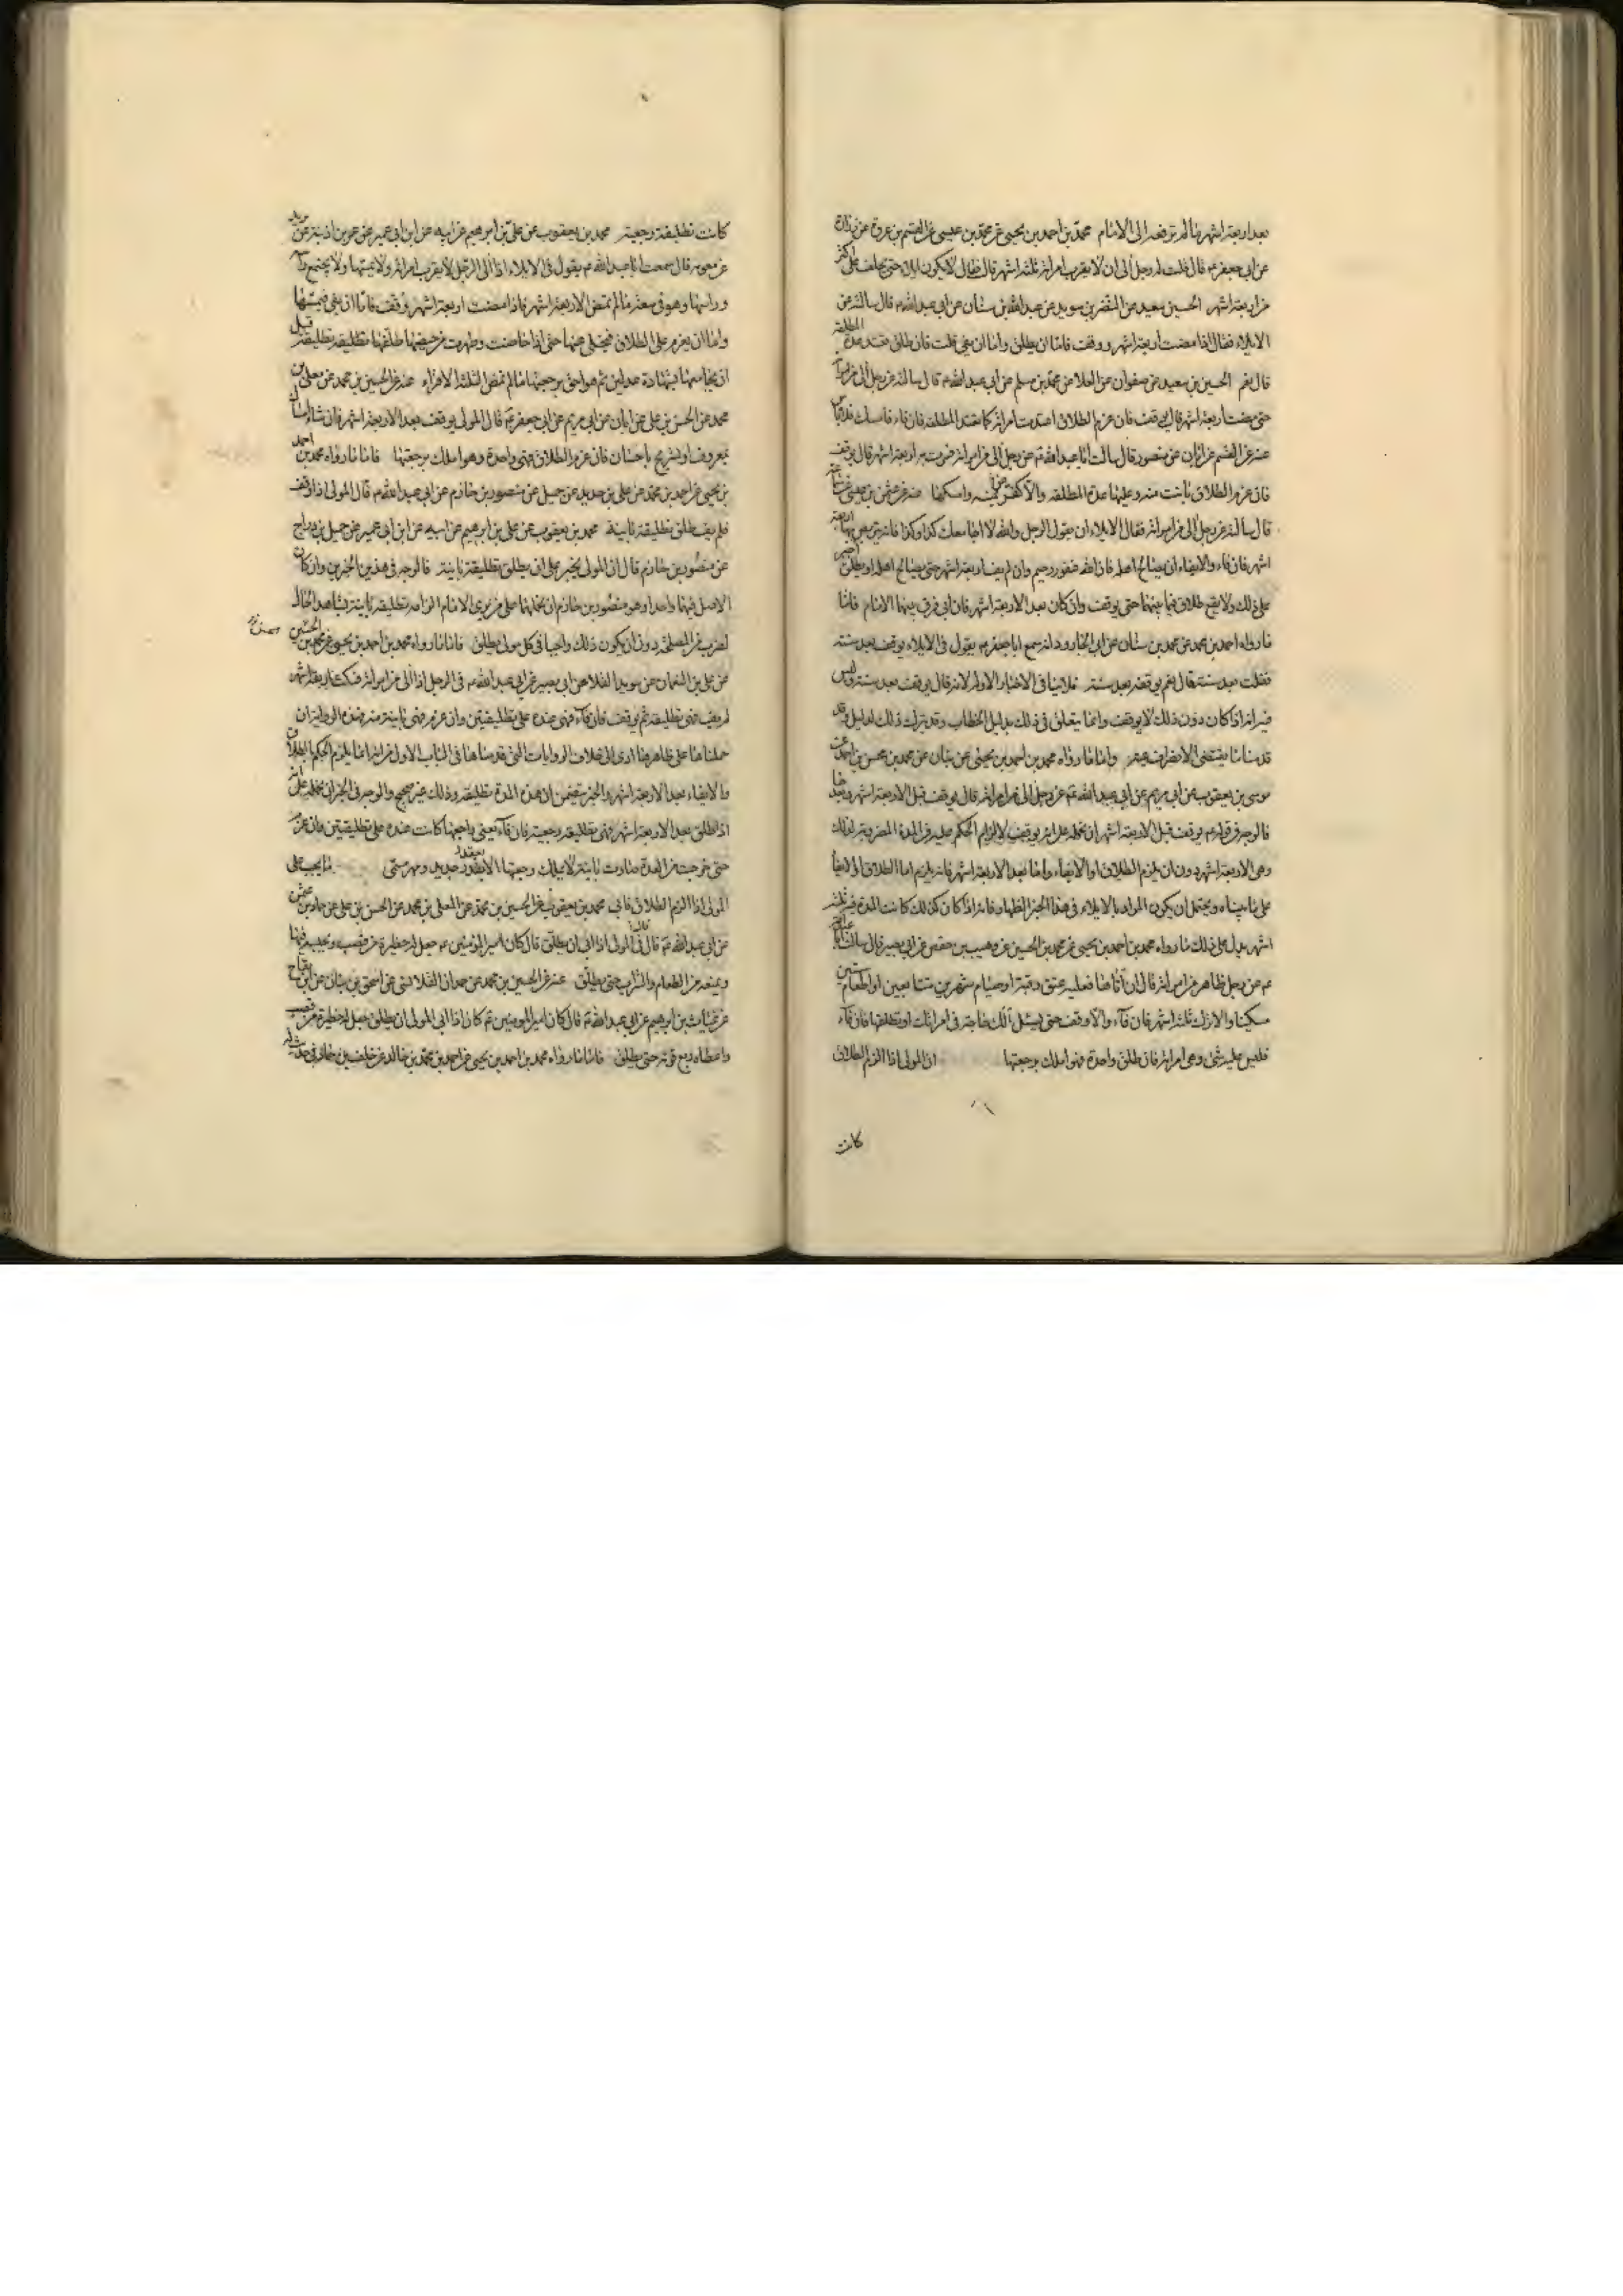 بعد اربعة اشهر ما لم ترفعه الى الامام محمد بن احمد بن يحيى عن محمد بن عيسى عن القسم بن عروة عن زرارة
عن ابى جعفر ع قال قلت له رجل الى ان لا يقرب امراته ثلثة اشهر قال فقال لا يكون ايلاء حتى يحلف على اكثر
من اربعة اشهر الحسين بن سعيد عن النضر بن سويد عن عبد الله بن سنان عن ابى عبد الله ع قال سالته عن
الايلاء فقال اذا مضت اربعة اشهر ووقف فاما ان يطلق واما ان يفى قلت فان طلق تعتد عدة المطلقة
قال نعم الحسين بن سعيد عن صفوان عن العلا عن محمد بن مسلم عن ابى عبد الله ع قال سالته عن رجل الى من امراته
حتى مضت اربعة اشهر قال يوقف فان عزم الطلاق اعتدت امراته كما تعتد المطلقة فان فاء فامسك فلا باس
عنه عن القسم عن ابان عن منصور قال سالت ابا عبد الله ع عن رجل الى من امراته فمرت به اربعة اشهر قال يوقف
فان عزم الطلاق بانت منه وعليها عدة المطلقة والا كفر عن يمينه وامسكها عنه عن عثمن بن عيسى عن سماعة
قال سالته عن رجل الى من امراته فقال الايلاء ان يقول الرجل والله لا اجامعك كذا وكذا فانه يتربص بها اربعة
اشهر فان فاء والايفاء ان يصالح اهله فان الله غفور رحيم وان لم يف اربعة اشهر حتى يصالح اهله او يطلق اجبر
على ذلك ولا يقع طلاق فيما بينهما حتى يوقف وان كان بعد الاربعة اشهر فان ابى فرق بينهما الامام فاما
ما رواه احمد بن محمد عن محمد بن سنان عن ابى الجارود انه سمع ابا جعفر ع يقول فى الايلاء يوقف بعد سنة
فقلت بعد سنة فقال نعم يوقف بعد سنة فلا ينافى الاخبار الاولة لانه قال يوقف بعد سنة وليس
فيه انه اذا كان دون ذلك لا يوقف وانما يتعلق فى ذلك بدليل الخطاب وقد يترك ذلك لدليل وقد
قدمنا ما يقتضى الانصراف عنه واما ما رواه محمد بن احمد بن يحيى عن بنان عن محمد بن محسن بن احمد عن
موسى بن يعقوب عن ابى مريم عن ابى عبد الله ع عن رجل الى من امراته قال يوقف قبل الاربعة اشهر وبعدها
فالوجه فى قوله ع يوقف قبل الاربعة اشهر ان نحمله على انه يوقف لالزام الحكم عليه من المدة المضروبة لذلك
وهى الاربعة اشهر دون ان يلزم الطلاق او الايفاء واما بعد الاربعة اشهر فانه يلزم اما الطلاق او الايفاء
على ما بيناه ويحتمل ان يكون المراد بالايلاء فى هذا الخبر الظهار فانه اذا كان كذلك كانت المدة فيه ثلثة
اشهر يدل على ذلك ما رواه محمد بن احمد بن يحيى عن محمد بن الحسين عن وهيب بن حفص عن ابى بصير قال سالت ابا عبد الله
ع عن رجل ظاهر من امراته قال ان اتاها فعليه عتق رقبة او صيام شهرين متتابعين او اطعام ستين
مسكينا والا ترك ثلثة اشهر فان فاء والا وقف حتى يسئل ألك حاجة فى امراتك او تطلقها فان فاء
فليس عليه شئ وهى امراته فان طلق واحدة فهو املك برجعتها ان المولى اذا الزم الطلاق
كانت
كانت تطليقة رجعية محمد بن يعقوب عن على بن ابرهيم عن ابيه عن ابن ابى عمير عن عمر بن اذينة عن بريد
بن معوية قال سمعت ابا عبد الله ع يقول فى الايلاء اذا الى الرجل لا يقرب امراته ولا يمسها ولا يجتمع راسه
وراسها وهو فى سعة ما لم تمض الاربعة اشهر فاذا مضت اربعة اشهر وقف فاما ان يفى فيمسها
واما ان يعزم على الطلاق فيخلى عنها حتى اذا حاضت وطهرت من حيضها طلقها تطليقة قبل
ان يجامعها بشهادة عدلين ثم هو احق برجعتها ما لم تمض الثلثة الاقراء عنه عن الحسين بن محمد عن معلى بن
محمد عن الحسن بن على عن ابان عن ابى مريم عن ابى جعفر ع قال المولى يوقف بعد الاربعة اشهر فان شاء امساك
بمعروف او تسريح باحسان فان عزم الطلاق فهى واحدة وهو املك برجعتها فاما ما رواه محمد بن احمد
بن يحيى عن احمد بن محمد عن على بن حديد عن جميل عن منصور بن حازم عن ابى عبد الله ع قال المولى اذا وقف
فلم يف طلق تطليقة باينة محمد بن يعقوب عن على بن ابرهيم عن ابيه عن ابن ابى عمير عن جميل بن دراج
عن منصور بن حازم قال ان المولى يجبر على ان يطلق تطليقة باينة فالوجه فى هذين الخبرين وان كان
الاصل فيهما واحدا وهو منصور بن حازم ان نحملهما على من يرى الامام الزامه تطليقة باينة بشاهد الحال
لضرب من المصلحة دون ان يكون ذلك واجبا فى كل مولى يطلق فاما ما رواه محمد بن احمد بن يحيى عن محمد بن الحسين
عن على بن النعمان عن سويد القلا عن ابى بصير عن ابى عبد الله ع فى الرجل اذا الى من امراته فمكث اربعة اشهر
لم يف فهى تطليقة ثم يوقف فان فاء فهى عنده على تطليقتين وان عزم فهى باينة منه فهذه الرواية ان
حملناها على ظاهرها ادى الى خلاف الروايات التى قدمناها فى الباب الاول من انه انما يلزم الحكم بالطلاق
والايفاء بعد الاربعة اشهر والخبر يتضمن ان هذه المدة تطليقة وذلك غير صحيح والوجه فى الخبر ان نحمله على انه
اذا طلق بعد الاربعة اشهر فهى تطليقة رجعية فان فاء يعنى راجعها كانت عنده على تطليقتين وان عزم
حتى خرجت من العدة صارت باينة لا يملك رجعتها الا بعقد جديد ومهر مسمى ما يجب على
المولى اذا الزم الطلاق فابى محمد بن يعقوب عن الحسين بن محمد عن المعلى بن محمد عن الحسن بن على عن حماد بن عثمن
عن ابى عبد الله ع قال فى المولى اذا ابى ان يطلق قال كان امير المؤمنين ع يجعل له حظيرة من قصب ويحبسه فيها
ويمنعه من الطعام والشراب حتى يطلق عنه عن الحسين بن محمد عن حمدان القلانسى عن اسحق بن بنان عن ابن بقاح
عن غياث بن ابرهيم عن ابى عبد الله ع قال كان امير المؤمنين ع كان اذا ابى المولى ان يطلق جعل له حظيرة من قصب
واعطاه ربع قوته حتى يطلق فاما ما رواه محمد بن احمد بن يحيى عن احمد بن محمد بن خالد عن خلف بن حماد فى حديث له